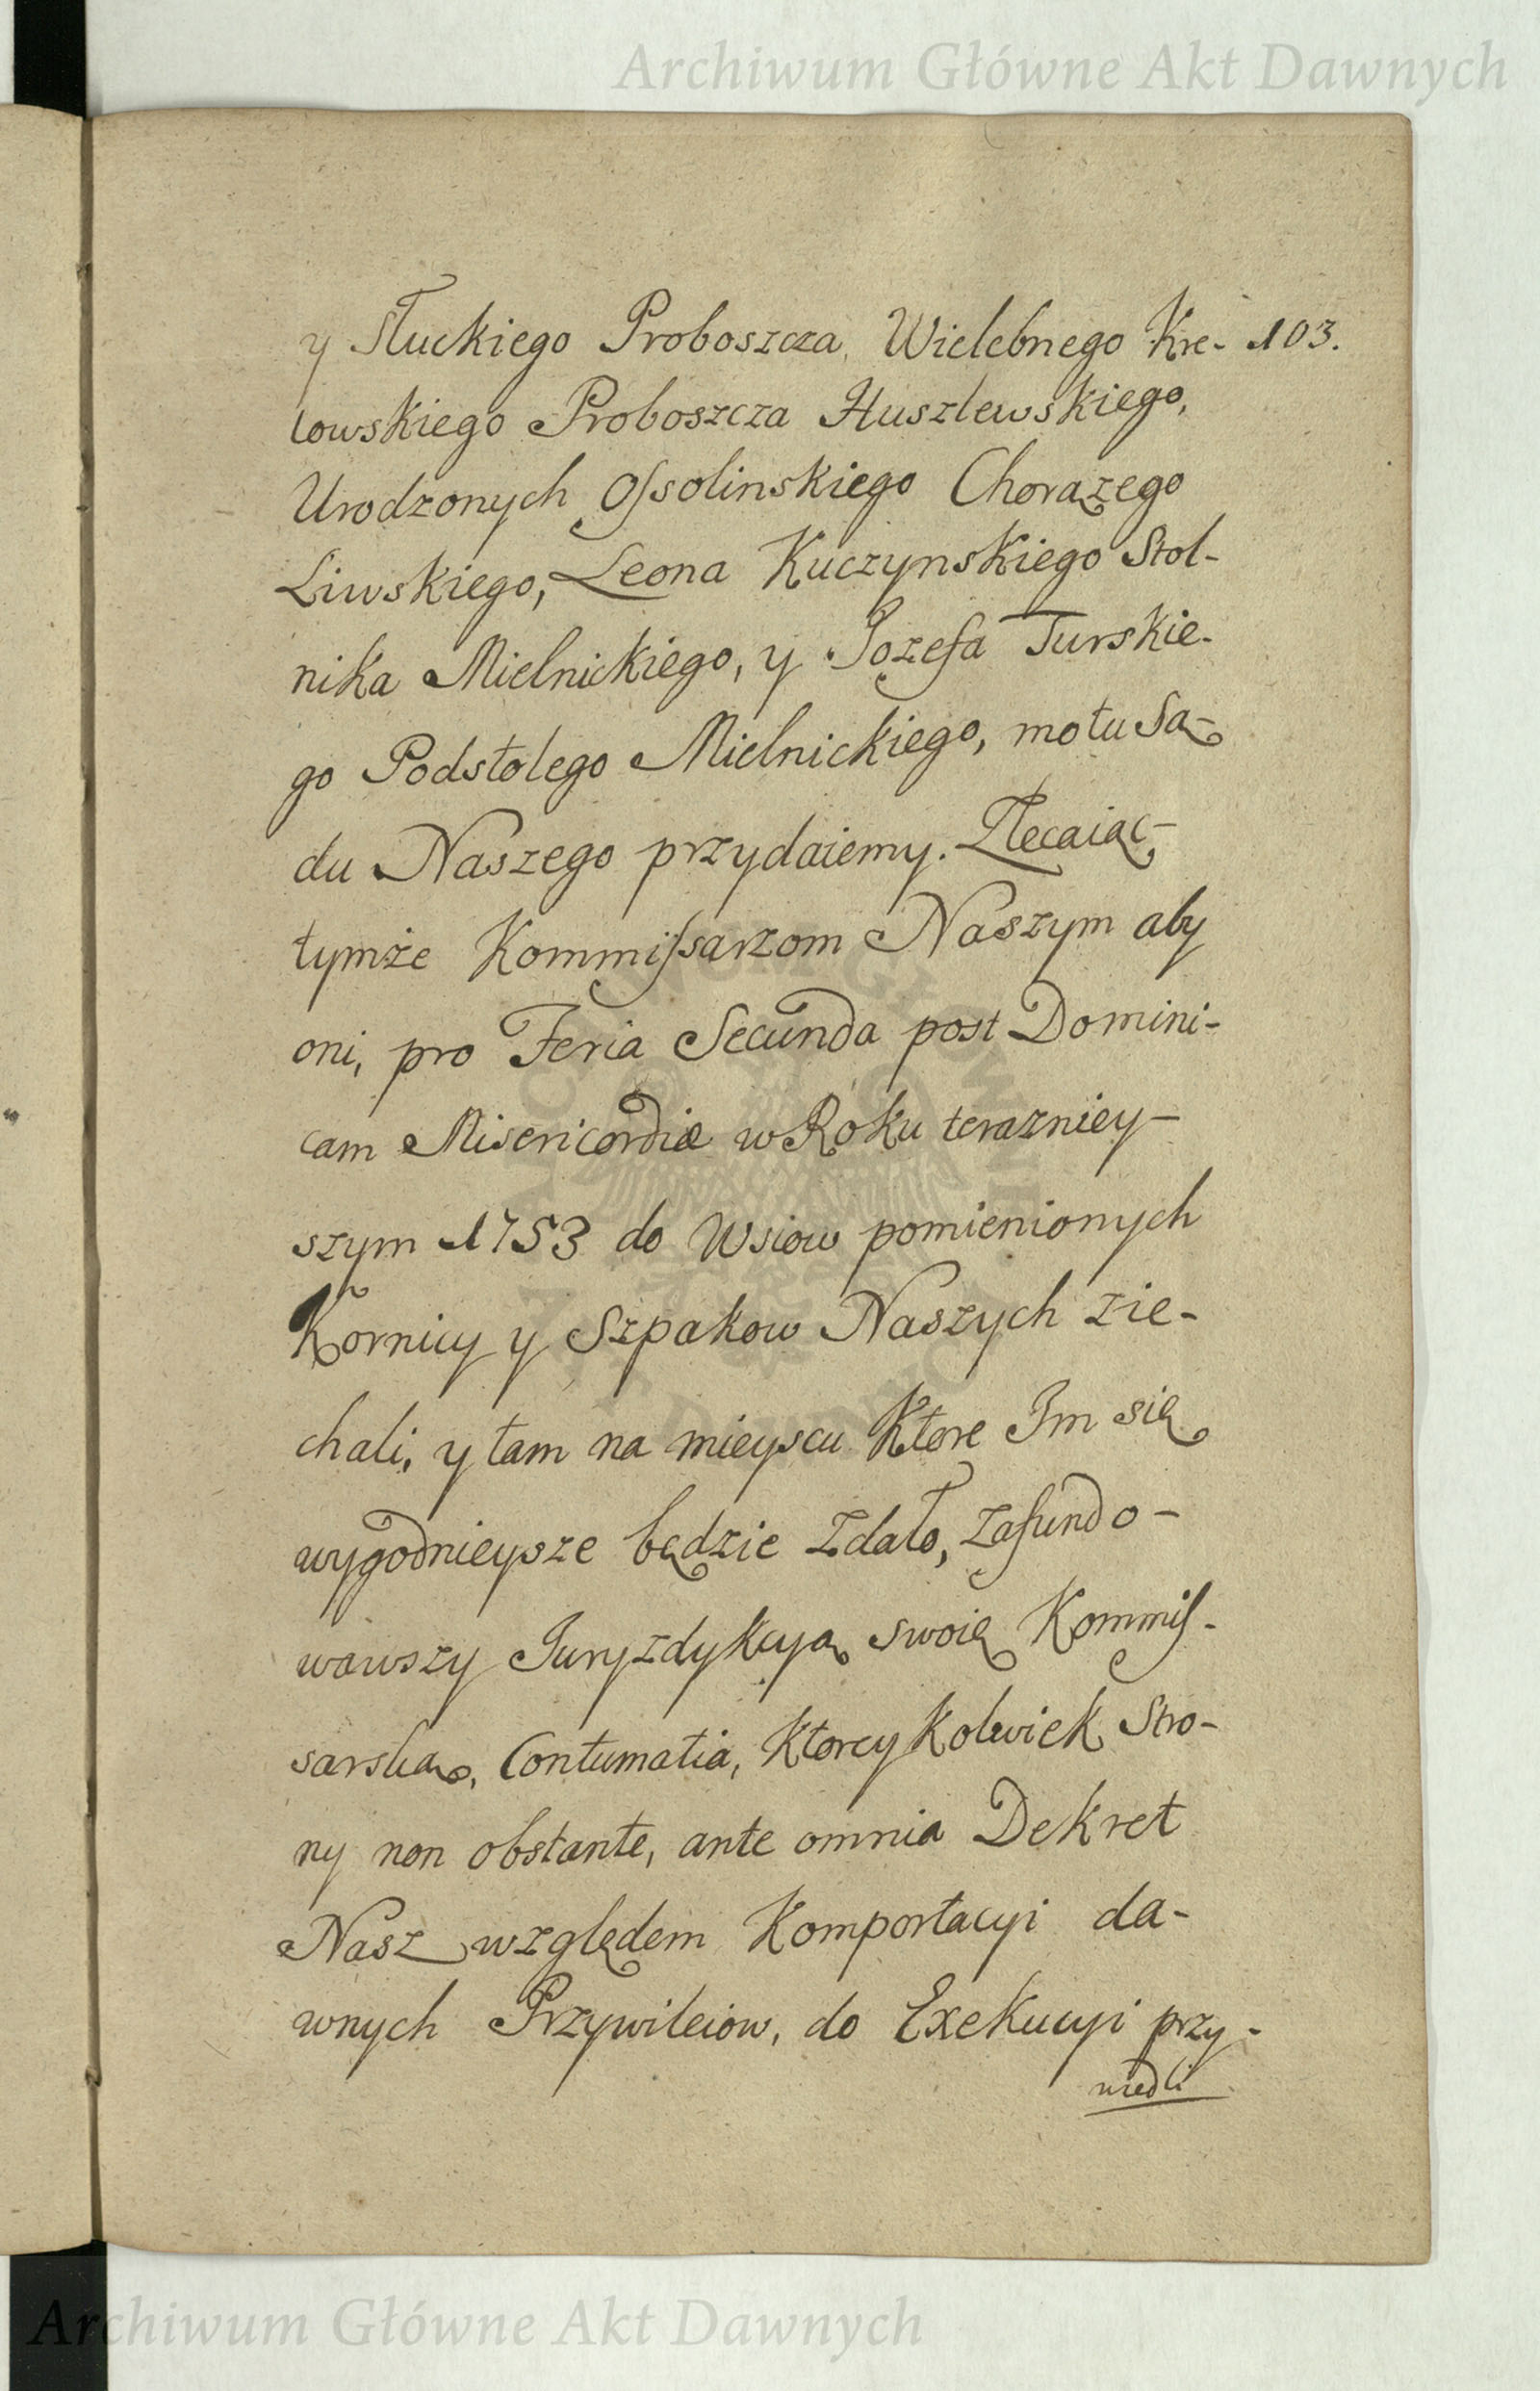 Archiwum Główne Akt Dawnych
y Słuckiego Proboszcza, Wielebnego Kre- 103.
lowskiego Proboszcza Huszlewskiego,
Urodzonych Ossolinskiego Chorązego
Liwskiego, Leona Kuczynskiego Stol-
nika Mielnickiego, y Jozefa Turskie-
go Podstolego Mielnickiego, motu Są-
du Naszego przydaiemy. Zlecaiąc
tymże Kommissarzom Naszym aby
oni, pro Feria Secunda post Domini-
cam Misericordiæ w Roku terazniey-
szym 1753 do Wsiow pomienionych
Kornicy y Szpakow Naszych zie-
chali, y tam na mieyscu Ktore Im się
wygodnieysze będzie zdało, zafundo-
wawszy Juryzdykcyą swoię Kommis-
sarską, Contumatia, Ktorey Kolwiek Stro-
ny non obstante, ante omnia Dekret
Nasz względem Komportacyi da-
wnych Przywileiow, do Exekucyi przy-
wiedli
Archiwum Główne Akt Dawnych